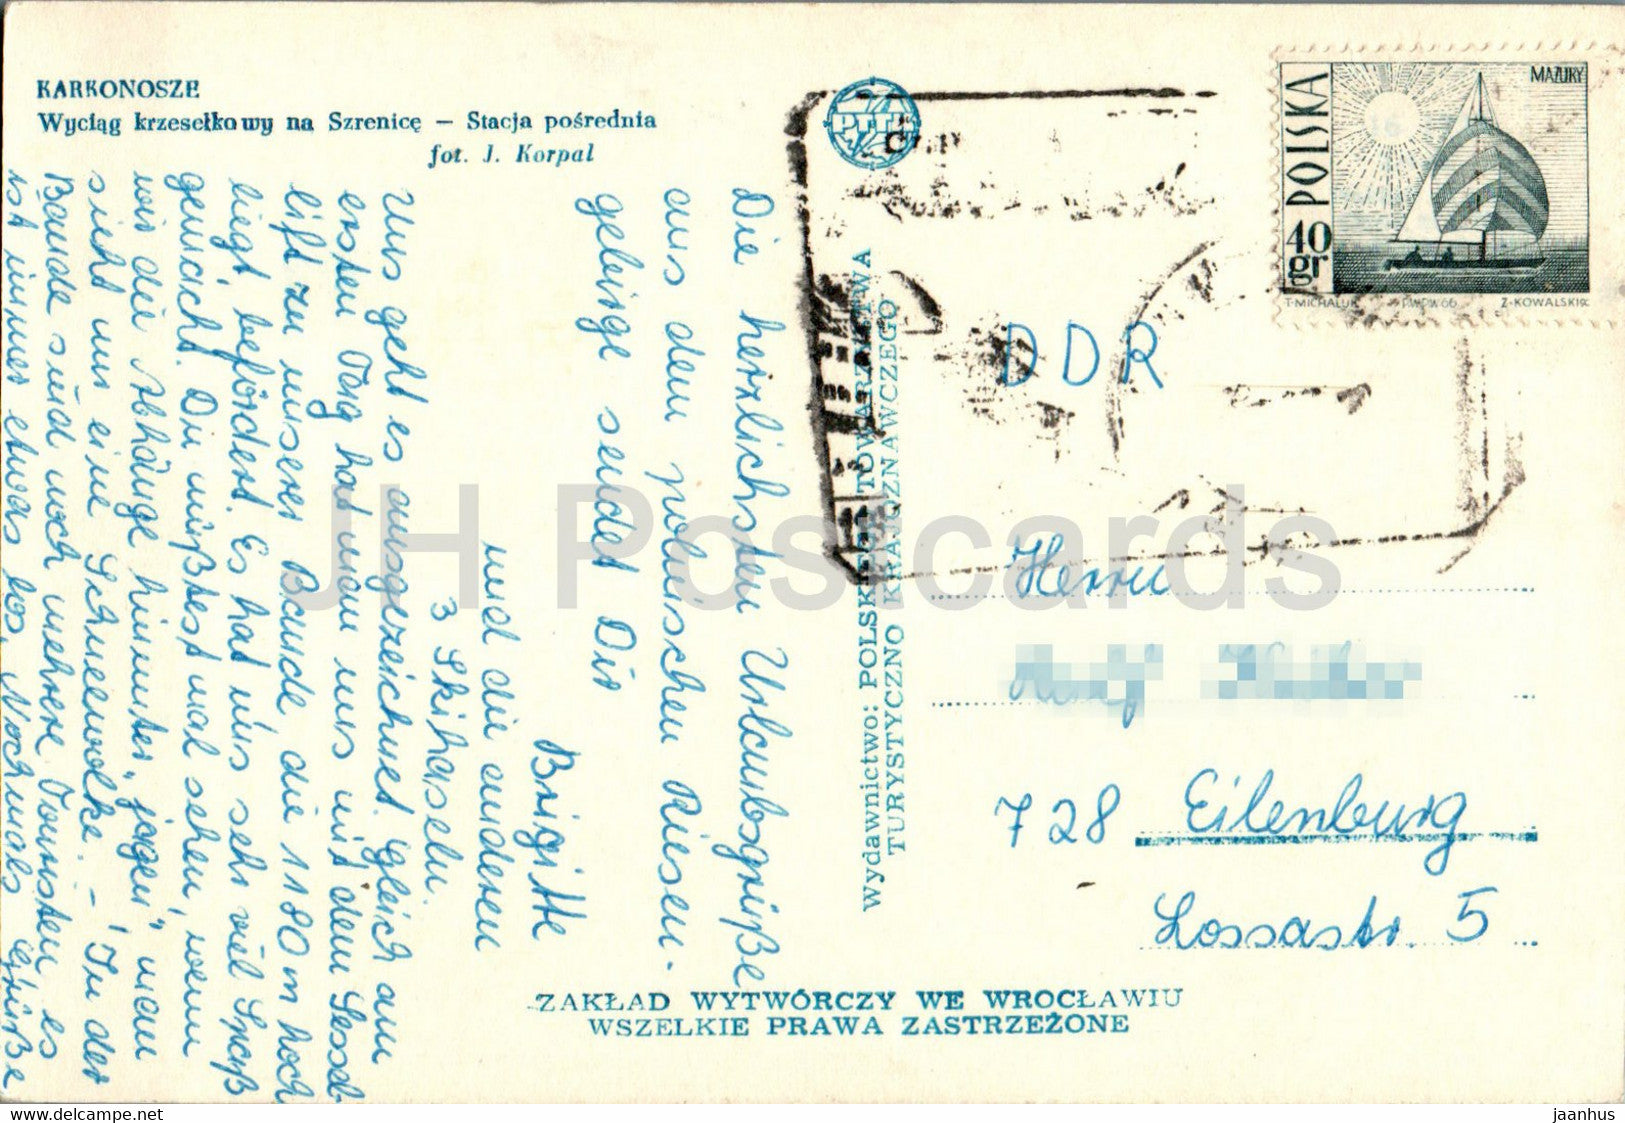 KARKONOSZE
Wyciąg krzesełkowy na Szrenicę – Stacja pośrednia
fot. J. Korpal
Die herzlichsten Urlaubsgrüße
aus dem polnischen Riesen-
gebirge sendet Dir
Brigitte
und die anderen
3 Skihaseln.
Uns geht es ausgezeichnet. Gleich am
ersten Tag hat man uns mit dem Sessel-
lift zu unserer Baude die 1180 m hoch
liegt, befördert. Es hat uns sehr viel Spaß
gemacht. Du müßtest mal sehen, wenn
wir die Abhänge hinunter „jagen“ man
sieht nur eine Schneewolke. – In der
Baude sind noch mehrere Touristen, es
ist immer etwas los. Nochmals Grüße
PTTK
Wydawnictwo: POLSKIE TOWARZYSTWA
TURYSTYCZNO KRAJOZNAWCZEGO
POLSKA
MAZURY
40
gr
T·MICHALUK PWPW 66 Z·KOWALSKI
DDR
Herrn
728 Eilenburg
Lossastr. 5
ZAKŁAD WYTWÓRCZY WE WROCŁAWIU
WSZELKIE PRAWA ZASTRZEŻONE
JH Postcards
Bought on delcampe.net
jaanhus